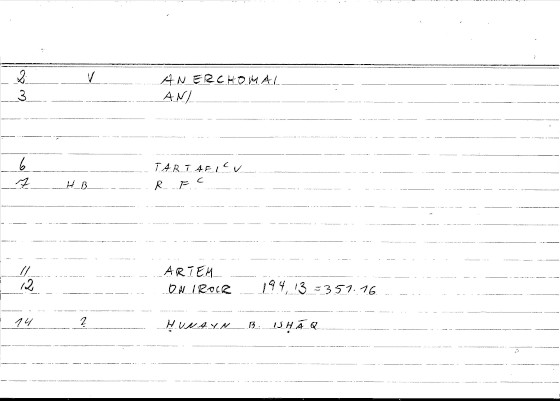 2 V ANERCHOMAI
3 AN/
6 TARTAFIᶜU
7 HB RFᶜ
11 ARTEM
12 ONIROCR 194,13=351.16
14 ? ḤUNAYN B. ISḤĀQ